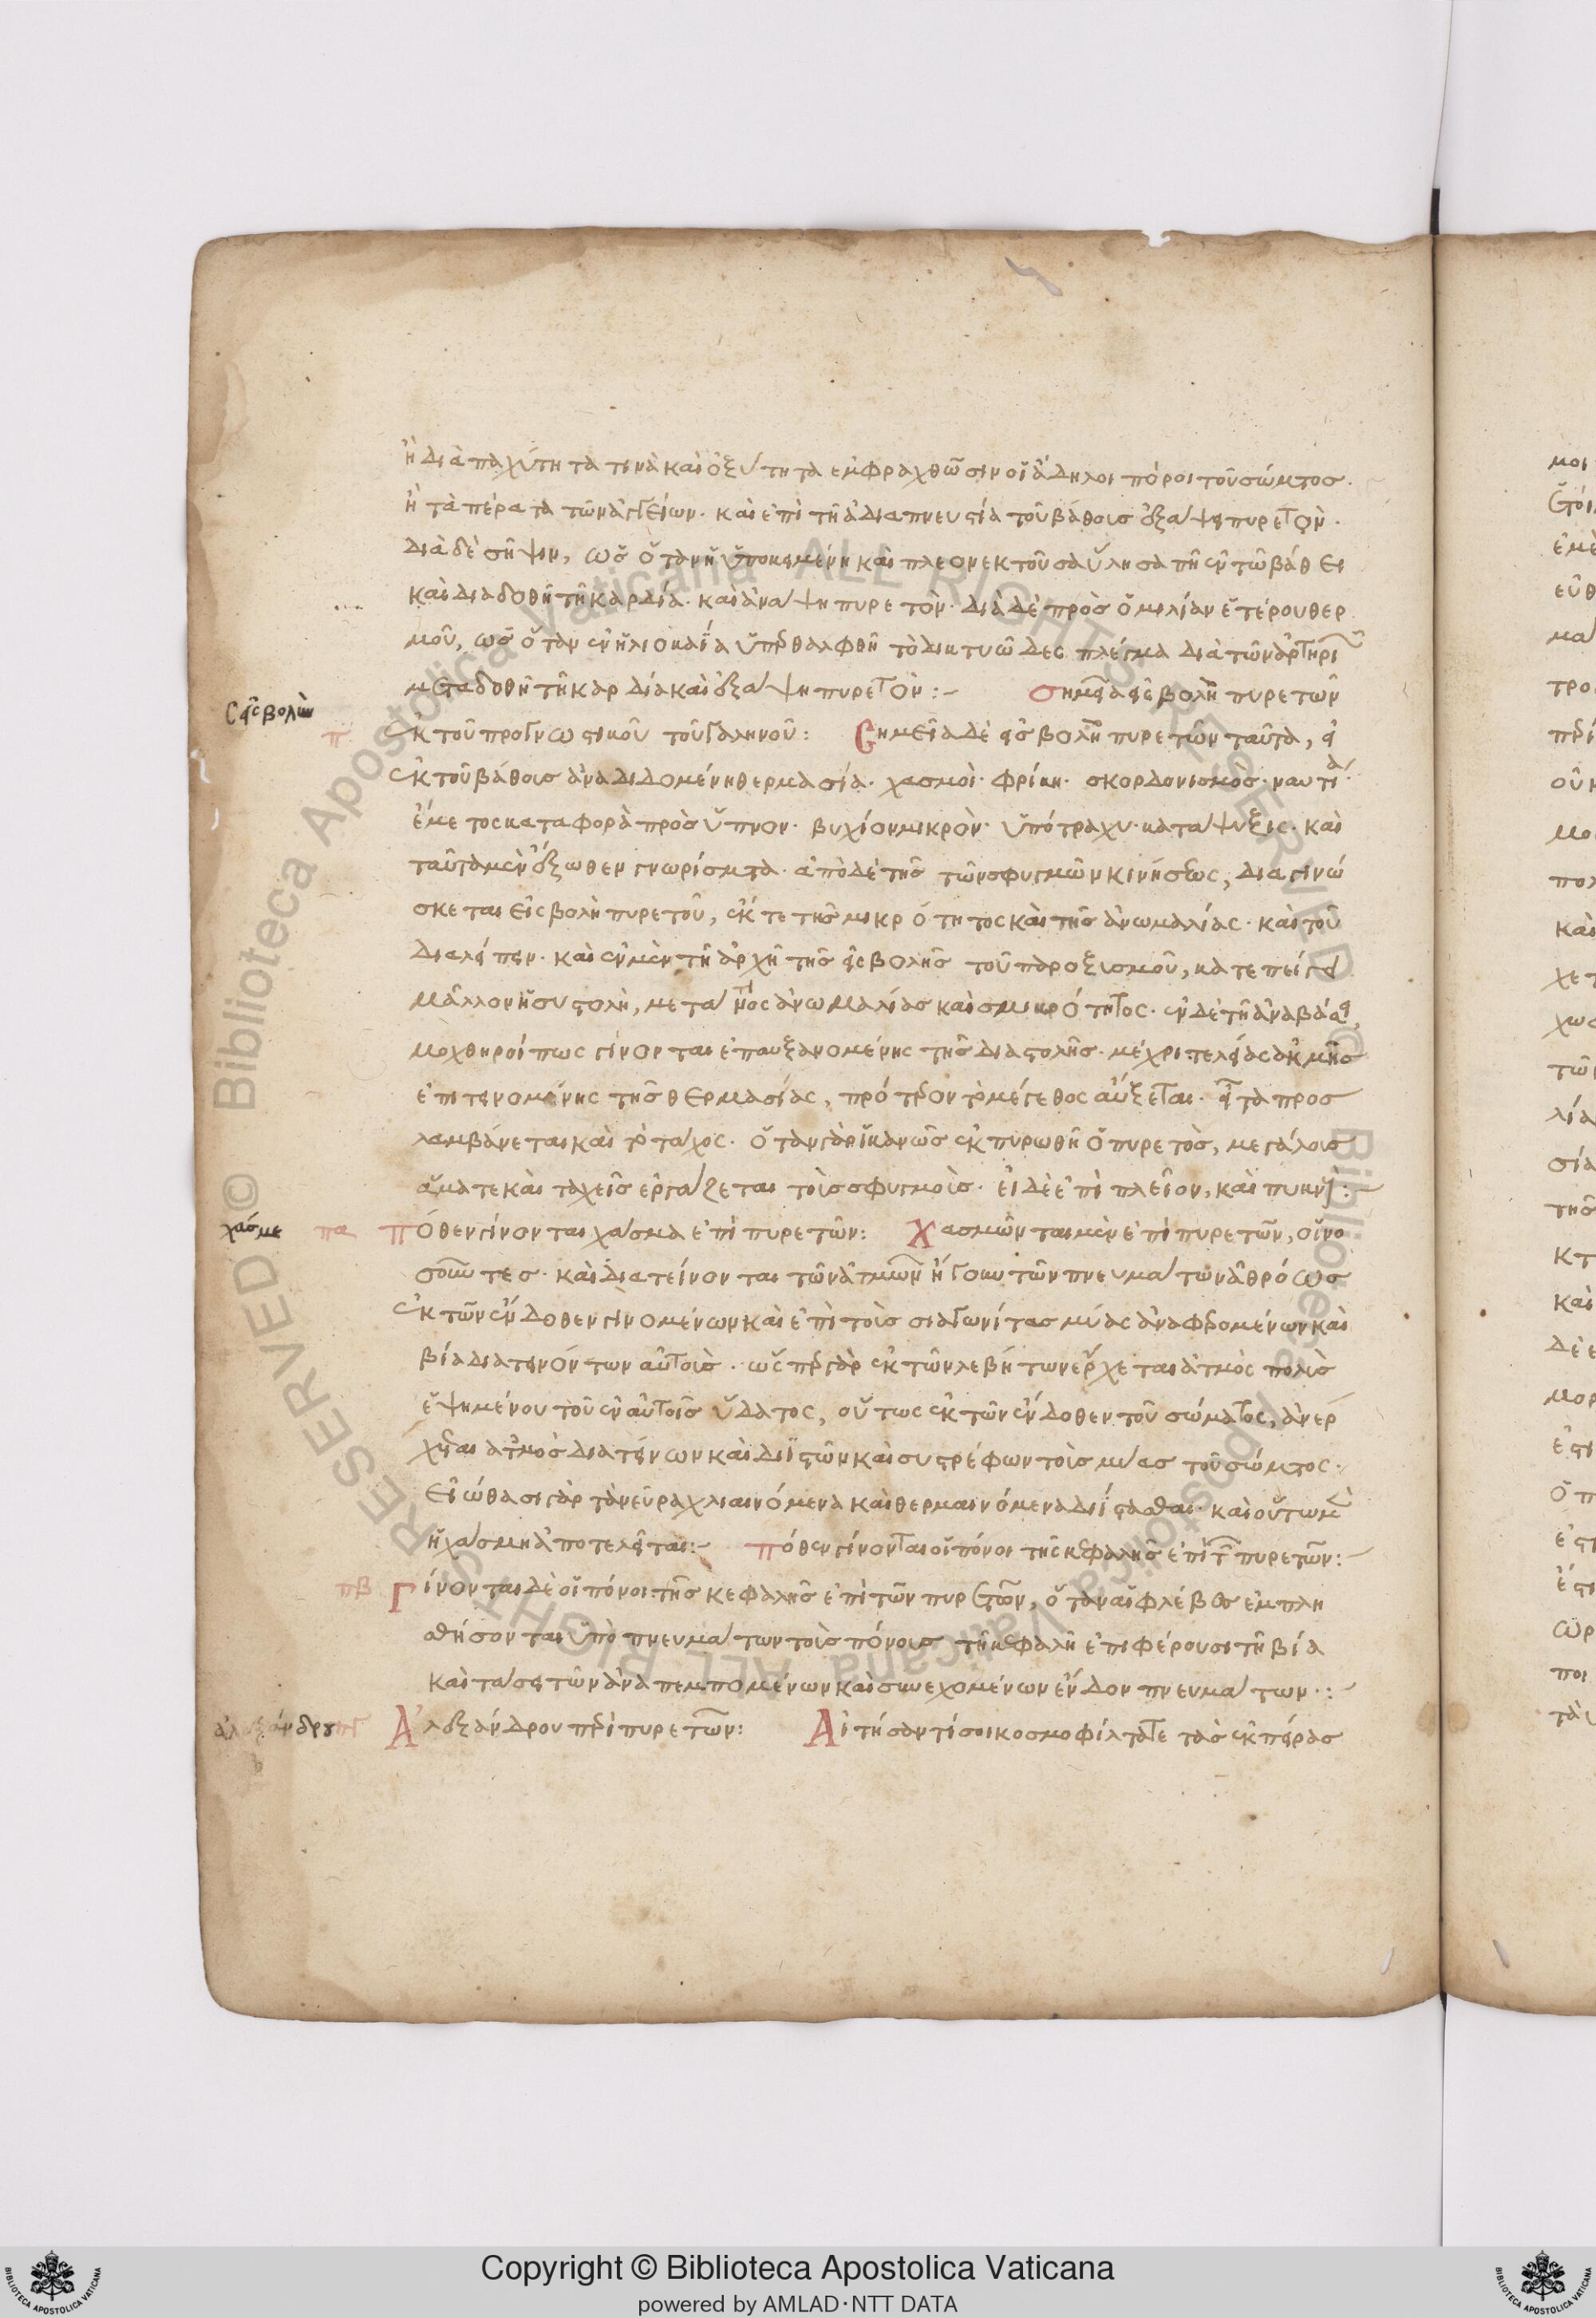 ἢ διὰ παχύτητά τινα καὶ ὀξύτητα ἐμφραχθῶσιν οἱ ἄδηλοι πόροι τοῦ σώματος.
ἢ τὰ πέρατα τῶν ἀγγείων· καὶ ἐπὶ τῆ ἀδιαπνευστία τοῦ βάθους ἐξάψει πυρετόν.
διὰ δὲ σῆψιν, ὡς ὅταν ἡ ὑποκειμένη καὶ πλεονεκτοῦσα ὕλη σαπῆ ἐν τῶ βάθει
καὶ διαδοθῆ τῆ καρδία· καὶ ἀνάψη πυρετόν· διὰ δὲ πρὸς ὁμιλίαν ἑτέρου θερ
μοῦ, ὡς ὅταν ἐν ἡλιοκαΐα ὑπερθαλφθῆ τὸ δικτυῶδες πλέγμα διὰ τῶν ἀρτηριῶν
μεταδοθῆ τῆ καρδία καὶ ἐξάψη πυρετόν :~ σημεῖα εἰσβολῆς πυρετῶν
εἰσβολῶν
π ἐκ τοῦ προγνωστικοῦ τοῦ Γαληνοῦ: Σημεῖα δὲ εἰσβολῆς πυρετῶν ταῦτα, ἡ
ἐκ τοῦ βάθους ἀναδιδομένη θερμασία· χασμοὶ· φρίκη· σκορδονισμὸς· ναυτία·
ἔμετος καταφορὰ πρὸς ὕπνον· βυχίον μικρὸν· ὑπότραχυ· κατάψυξις· καὶ
ταῦτα μὲν ἔξωθεν γνωρίσματα· ἀπὸ δὲ τῆς τῶν σφυγμῶν κινήσεως, διαγινώ
σκεται εἰσβολὴ πυρετοῦ, ἔκ τε τῆς μικρότητος καὶ τῆς ἀνωμαλίας· καὶ τοῦ
διαλείπειν· καὶ ἐν μὲν τῆ ἀρχῆ τῆς εἰσβολῆς τοῦ παροξισμοῦ, κατεπείγει
μᾶλλον ἡ συστολὴ, μετά τινος ἀνωμαλίας καὶ σμικρότητος· ἐν δὲ τῆ ἀναβάσει,
μοχθηροί πως γίνονται ἐπαυξανομένης τῆς διαστολῆς· μέχρι τελείας ἀκμῆς
ἐπιτεινομένης τῆς θερμασίας, πρότερον τὸ μέγεθος αὔξεται· εἶτα προσ
λαμβάνεται καὶ τὸ τάχος· ὅταν γὰρ ἱκανῶς ἐκπυρωθῆ ὁ πυρετὸς, μεγάλους
ἅμα τε καὶ ταχεῖς ἐργάζεται τοὺς σφυγμοὺς· εἰ δὲ ἐπὶ πλεῖον, καὶ πυκνούς:~
χάσμε πα Πόθεν γίνονται χάσμα ἐπὶ πυρετῶν: Χασμῶνται μὲν ἐπὶ πυρετῶν, οἱ νο
σοῦντες· καὶ διατείνονται τῶν ἀτμῶν ἤγουν τῶν πνευμάτων ἀθρόως
ἐκ τῶν ἔνδοθεν γινομένων καὶ ἐπὶ τοὺς σιαγωνίτας μύας ἀναφερομένων καὶ
βία διατεινόντων αὐτοὺς· ὥσπερ γὰρ ἐκ τῶν λεβήτων ἔρχεται ἀτμὸς πολὺς
ἑψημένου τοῦ ἐν αὐτοῖς ὕδατος, οὕτως ἐκ τῶν ἔνδοθεν τοῦ σώματος, ἀνέρ
χεται ἀτμὸς διατείνων καὶ διϊστῶν καὶ συστρέφων τοὺς μύας τοῦ σώματος·
εἰώθασι γὰρ τὰ νεῦρα χλιαινόμενα καὶ θερμαινόμενα διΐστασθαι· καὶ οὕτω μὲν
ἡ χάσμη ἀποτελεῖται:~ Πόθεν γίνονται οἱ πόνοι τῆς κεφαλῆς ἐπὶ τῶν πυρετῶν:~
πβ Γίνονται δὲ οἱ πόνοι τῆς κεφαλῆς ἐπὶ τῶν πυρετῶν, ὅταν αἱ φλέβες ἐμπλη
σθήσονται ὑπὸ πνευμάτων τοὺς πόνους τῆ κεφαλῆ ἐπιφέρουσι τῆ βία
καὶ τάσει τῶν ἀναπεμπομένων καὶ συνεχομένων ἔνδον πνευμάτων·:~
ἀλεξάνδρου πγ Ἀλεξάνδρου περὶ πυρετῶν: Αἰτήσαντί σοι κοσμοφίλτατε τὰς ἐκ πείρας
Copyright © Biblioteca Apostolica Vaticana
powered by AMLAD·NTT DATA